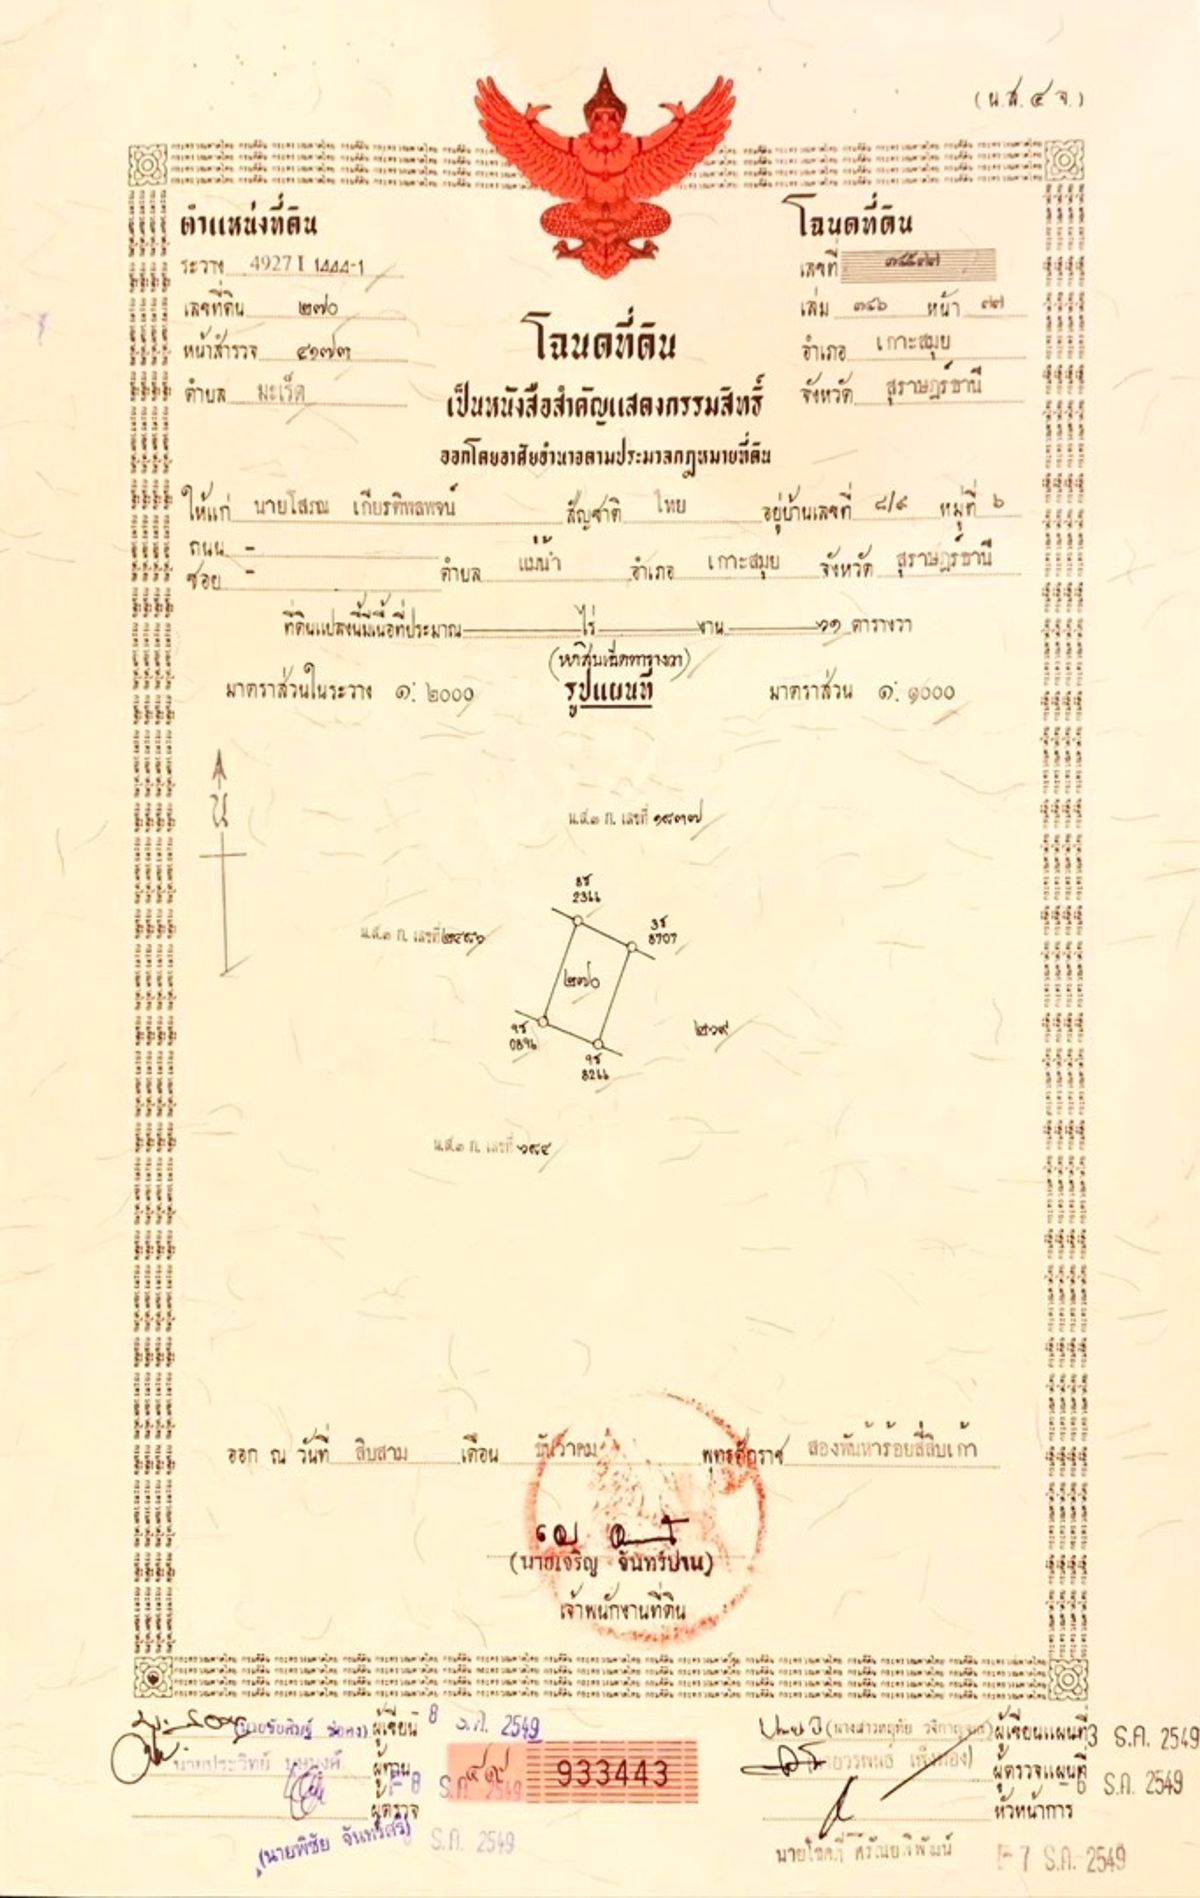 (น.ส. ๔ จ.)
ตำแหน่งที่ดิน
ระวาง 4927 I 1444-1
เลขที่ดิน ๒๗๐
หน้าสำรวจ ๔๑๗๓
ตำบล มะเร็ต
โฉนดที่ดิน
เลขที่
เล่ม ๓๔๖ หน้า ๗๗
อำเภอ เกาะสมุย
จังหวัด สุราษฎร์ธานี
โฉนดที่ดิน
เป็นหนังสือสำคัญแสดงกรรมสิทธิ์
ออกโดยอาศัยอำนาจตามประมวลกฎหมายที่ดิน
ให้แก่ นายโสรณ เกียรติพลพจน์ สัญชาติ ไทย อยู่บ้านเลขที่ ๘/๙ หมู่ที่ ๖
ถนน -
ซอย - ตำบล แม่น้ำ อำเภอ เกาะสมุย จังหวัด สุราษฎร์ธานี
ที่ดินแปลงนี้มีเนื้อที่ประมาณ ไร่ งาน ตารางวา
มาตราส่วนในระวาง ๑: ๒๐๐๐ รูปแผนที่ มาตราส่วน ๑: ๑๐๐๐
น
น.ส.๓ ก. เลขที่ ๑๘๓๗
น.ส.๓ ก. เลขที่
๒๗๐
๒๖๙
น.ส.๓ ก. เลขที่
ออก ณ วันที่ สิบสาม เดือน ธันวาคม พุทธศักราช สองพันห้าร้อยสี่สิบเก้า
(นายเจริญ จันทร์ปาน)
เจ้าพนักงานที่ดิน
ผู้เขียน 8 ธ.ค. 2549
นายประวิทย์ ผู้ทาน
ผู้ตรวจ
(นายพิชัย จันทร์ศรี) ธ.ค. 2549
933443
ผู้เขียนแผนที่ ธ.ค. 2549
ผู้ตรวจแผนที่ - 6 ธ.ค. 2549
หัวหน้าการ
- 7 ธ.ค. 2549